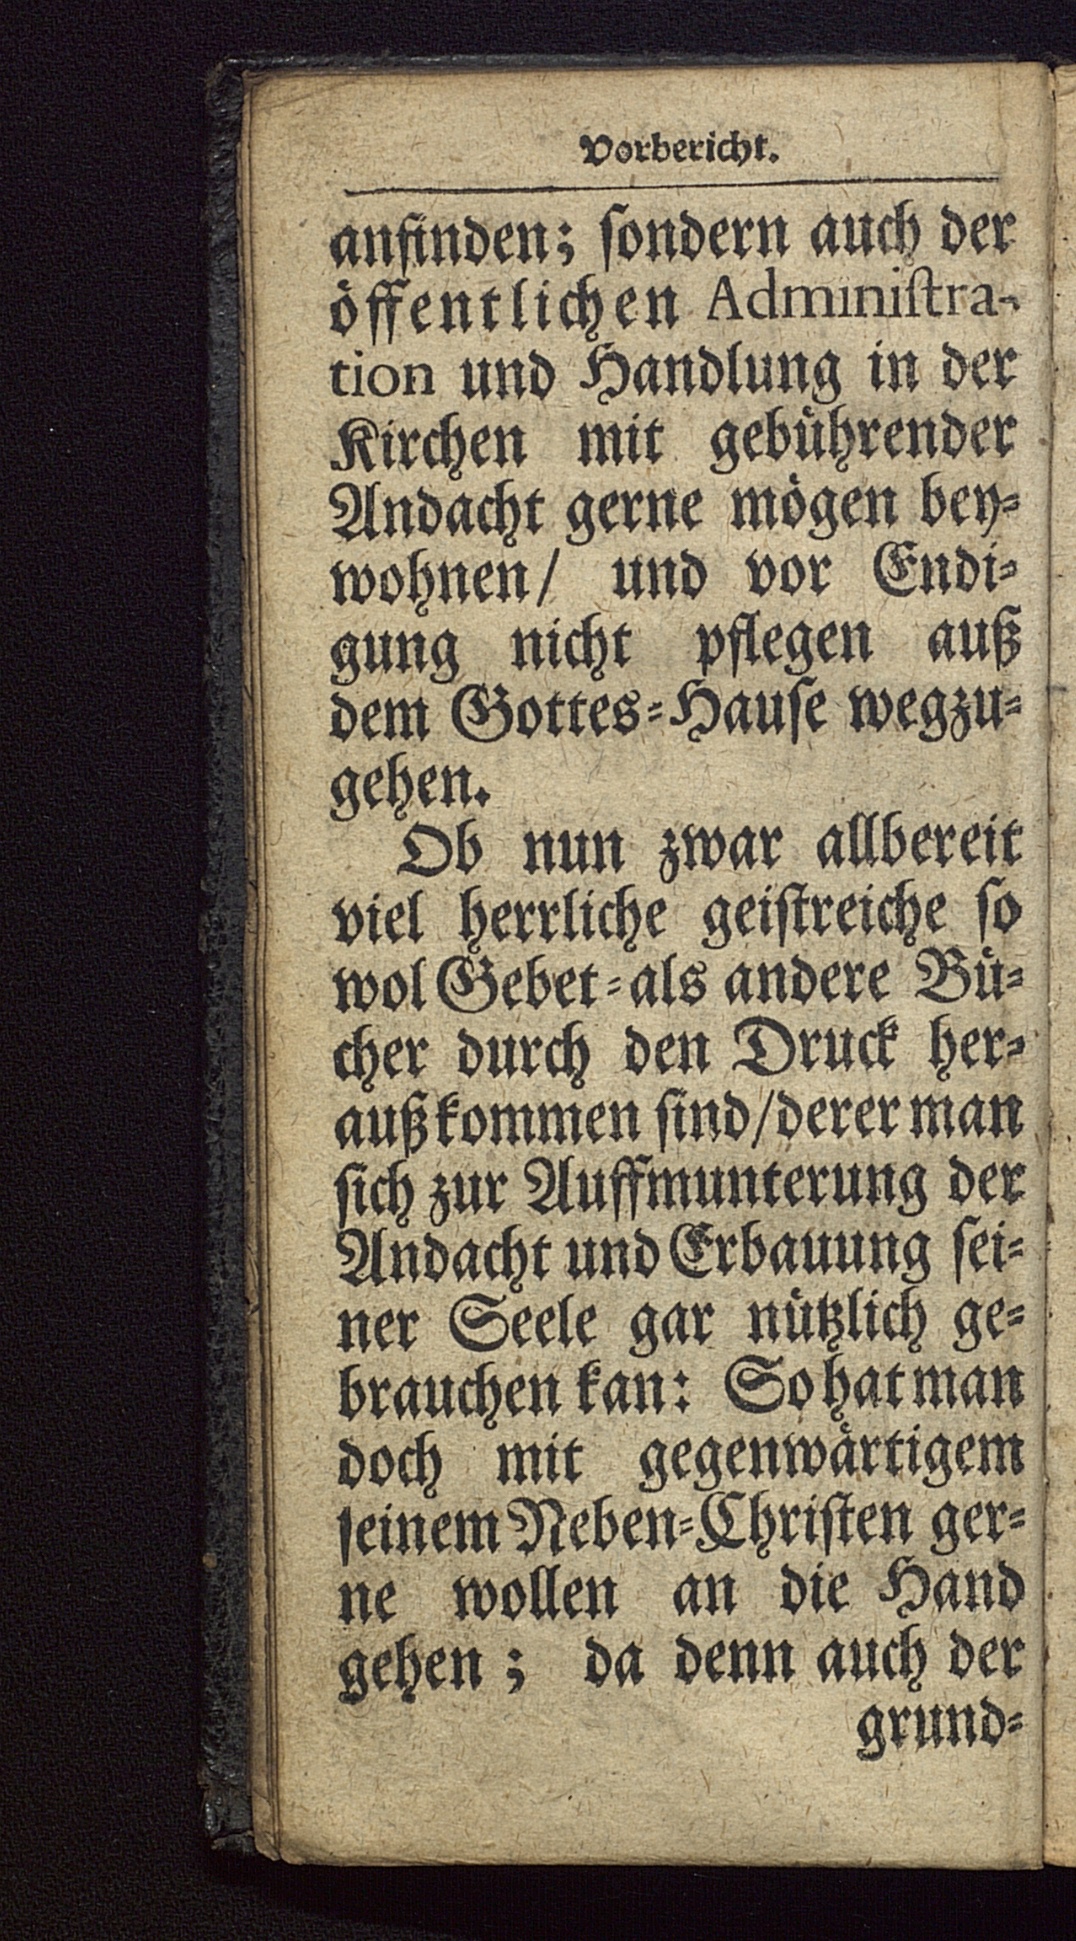 Vorbericht.
anfinden; ſondern auch der
oͤffentlichen Adminiſtra-
tion und Handlung in der
Kirchen mit gebuͤhrender
Andacht gerne moͤgen bey⸗
wohnen/ und vor Endi⸗
gung nicht pflegen auß
dem Gottes⸗Hauſe wegzu⸗
gehen.
Ob nun zwar allbereit
viel herrliche geiſtreiche ſo
wol Gebet⸗als andere Buͤ⸗
cher durch den Druck her⸗
außkommen ſind/derer man
ſich zur Auffmunterung der
Andacht und Erbauung ſei⸗
ner Seele gar nuͤtzlich ge⸗
brauchen kan: So hat man
doch mit gegenwaͤrtigem
ſeinem Neben⸗Chriſten ger⸗
ne wollen an die Hand
gehen; da denn auch der
grund⸗